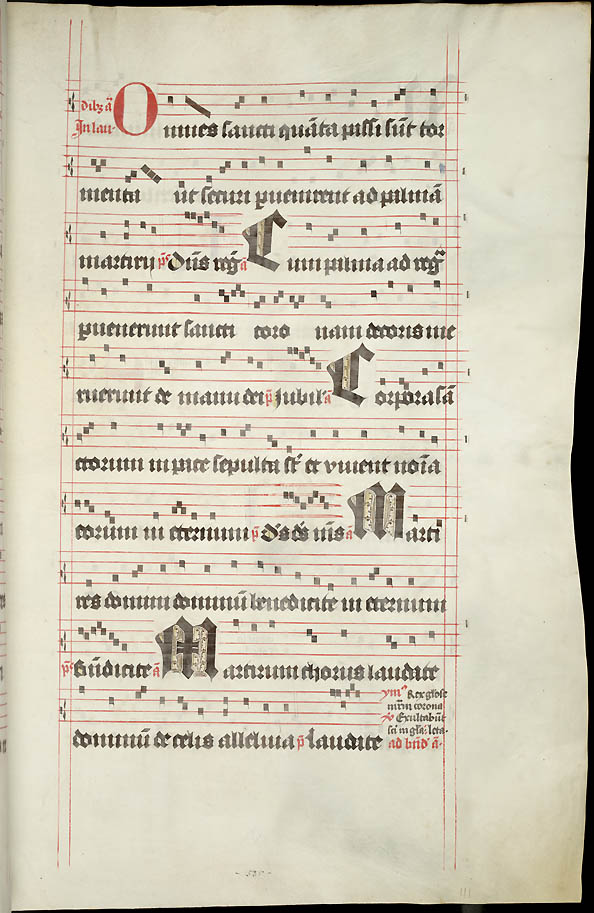 dib⁊ ā
In lau-
Omnes sancti quāta passi sūt tor
menta ut securi pueniẽrent ad palmā
martirij p̄s Dn̄s reg̃ ā Cum palma ad reg̃
puenerunt sancti coro nam decoris me
ruerunt de manu dei p̄ Jubil' ā Corpora sā
ctorum in pace sepulta st̄ et viuent noīa
eorum in eternum p̄ ds ds m̄s ā Marti
res domini dominū benedicite in eternum
p̄s Bn̄dicite ā Martirum chorus laudate
dominū de celis alleluia p̄ Laudate
ymꝰ Rex glōse
mr̄m corona
℣ Exultabūt
sci in gla. leta.
ad bn̄d' ā.